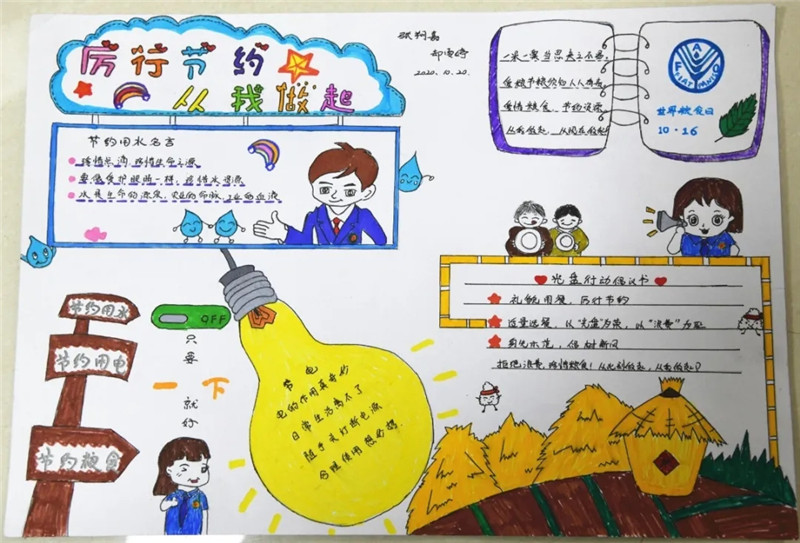 厉行节约
从我做起
2020.10.20.
一米一粟当思来之不易,
爱粮节粮
爱惜粮食、节约资源,
从我做起、从现在做起
世界粮食日
10·16
节约用水名言
珍惜水滴,珍惜生命之源
要像爱护眼睛一样,珍惜水资源
水是生命的源泉,农业的命脉,工业的血液
光盘行动倡议书
礼貌用餐,厉行节约
适量选餐,以“光盘”为荣,以“浪费”为耻
争先示范,倡树新风
拒绝浪费,珍惜粮食!从此刻做起,从我做起!
节约用水
节约用电
节约粮食
OFF
只要
一下
就好
节电
电的作用真奇妙
日常生活离不了
随手关灯断电源
合理使用想妙招